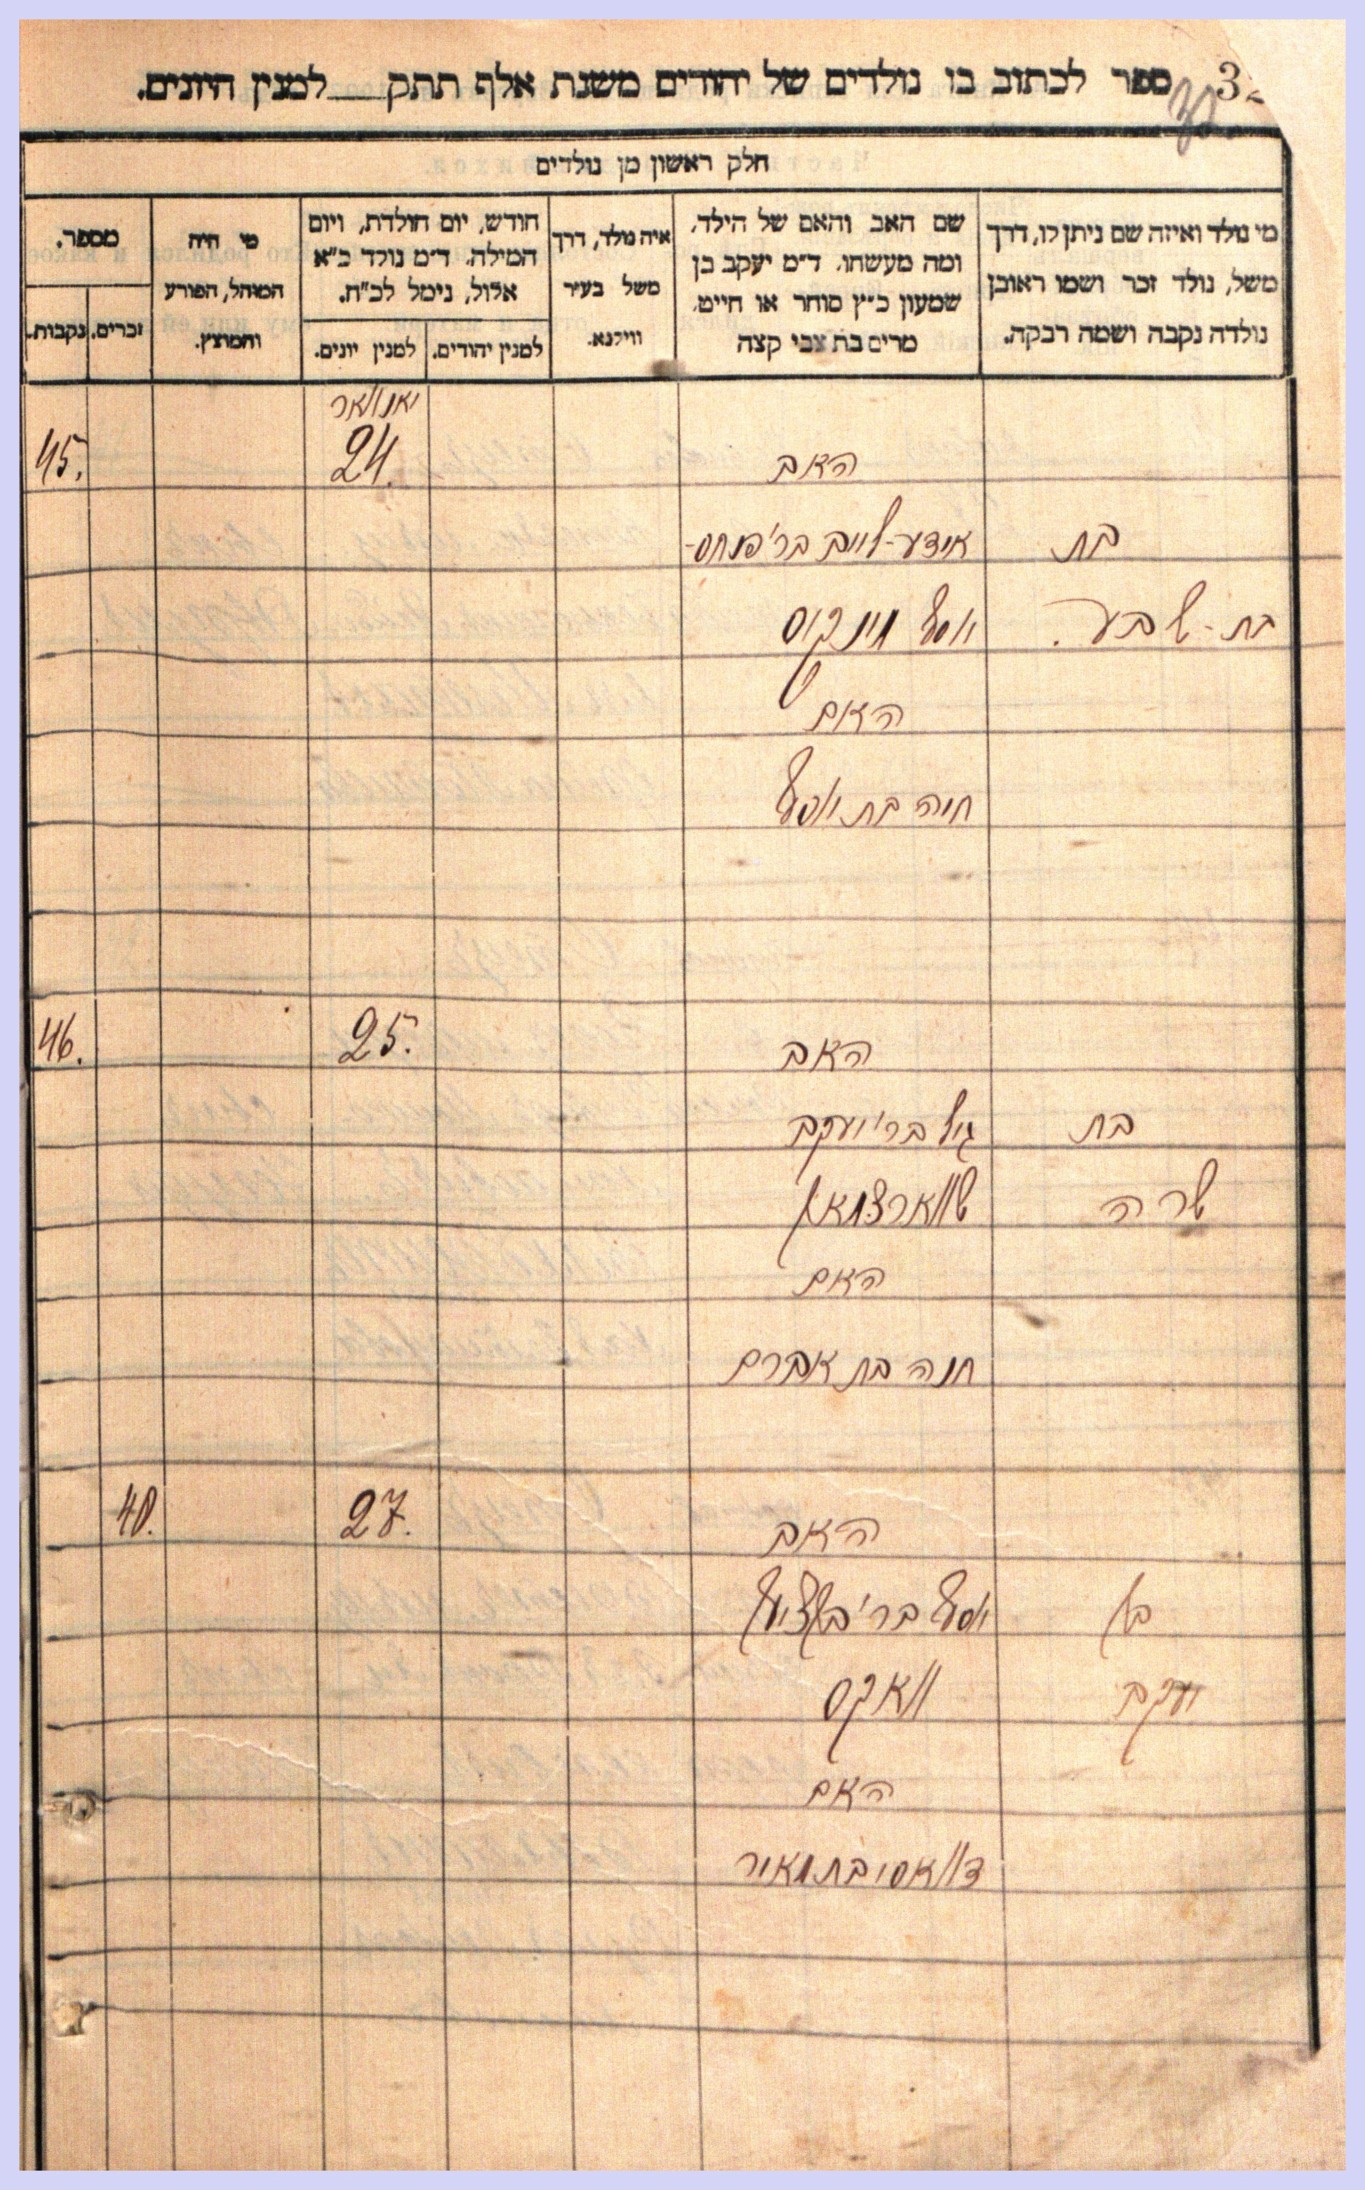 32
ספר לכתוב בו נולדים של יהודים משנת אלף תתק___ למנין היונים.
חלק ראשון מן נולדים
מי נולד ואיזה שם ניתן לו, דרך
משל, נולד זכר ושמו ראובן
נולדה נקבה ושמה רבקה.
שם האב והאם של הילד,
ומה מעשהו. ד"מ יעקב בן
שמעון כ"ץ סוחר או חייט,
מרים בת צבי קצה
איה נולד, דרך
משל בעיר
ווילנא.
חודש, יום הולדת, ויום
המילה. ד"מ נולד כ"א
אלול, נימל לכ"ח.
למנין יהודים.
למנין יונים.
מי היה
המוהל, הפורע
והמוצץ.
מספר.
זכרים.
נקבות.
יאנוואר
האב 24. 45.
בת אידע-לייב בר' פנחס-
בת-שבע. יוסף פינקוס
האם
חיה בת יוסף
האב 25. 46.
בת בר' יעקב
שרה שווארצמאן
האם
חנה בת אברם
האב 27. 40.
בן יוסף בר' בצלאל
יעקב וואקס
האם
דוואסי בת מאיר